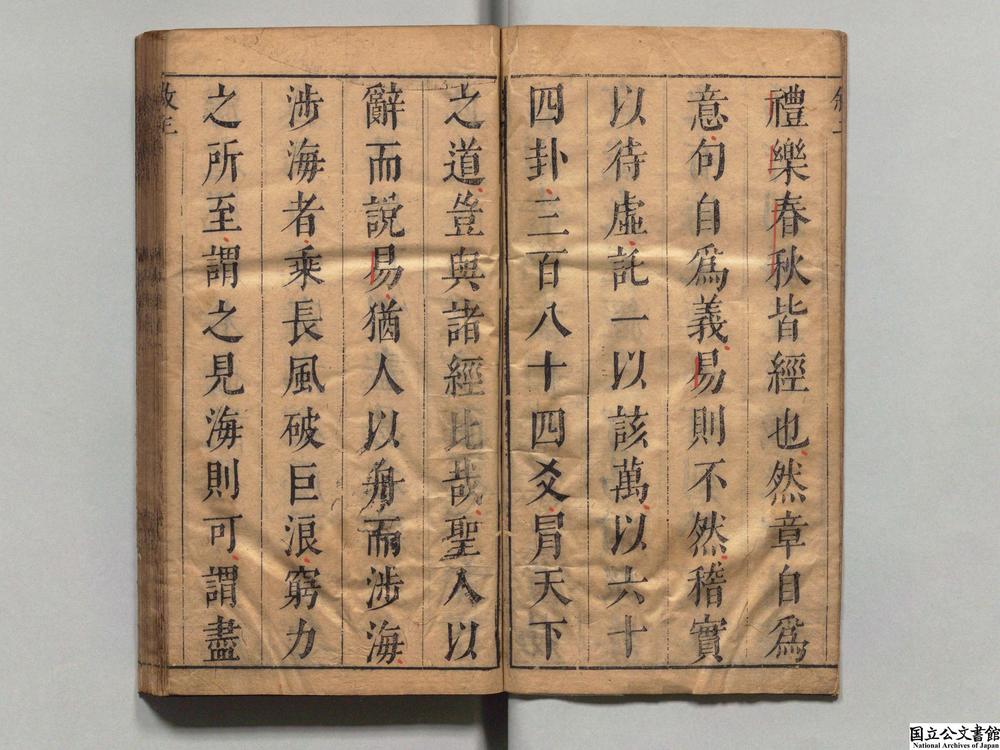 禮樂春秋皆經也然章自爲
意句自爲義易則不然稽實
以待虛託一以該萬以六十
四卦三百八十四爻冐天下
之道豈與諸經比哉聖人以
辭而說易猶人以舟而涉海
涉海者乘長風破巨浪窮力
之所至謂之見海則可謂盡
国立公文書館
National Archives of Japan